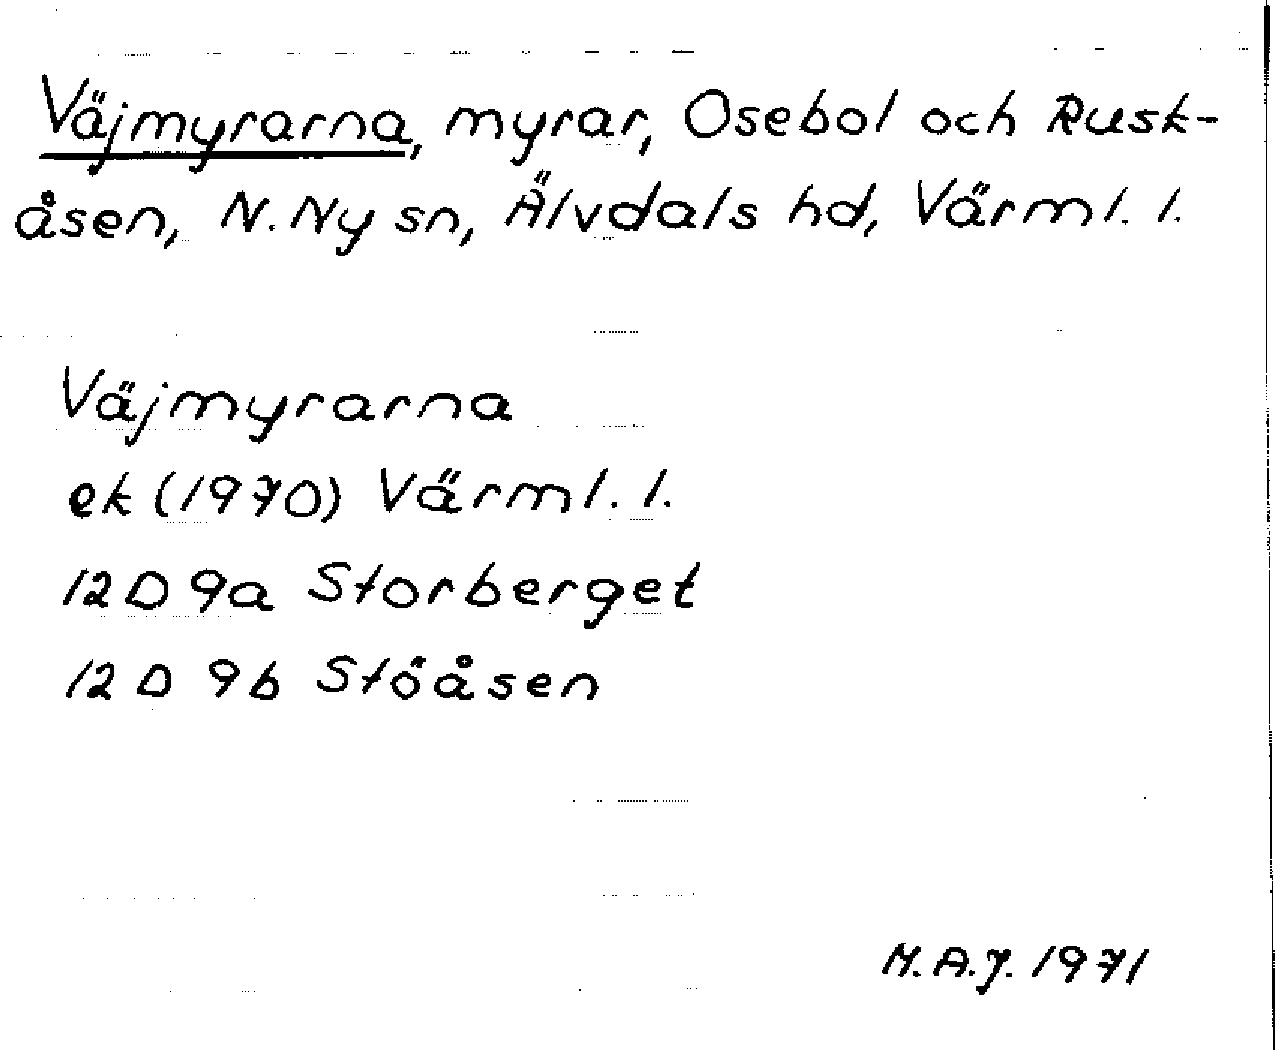 Väjmyrarna, myrar, Osebol och Rusk-
åsen, N. Ny sn, Älvdals hd, Värml. l.
Väjmyrarna
ek (1970) Värml. l.
12D 9a Storberget
12D 9b Stöåsen
M.A.J. 1971